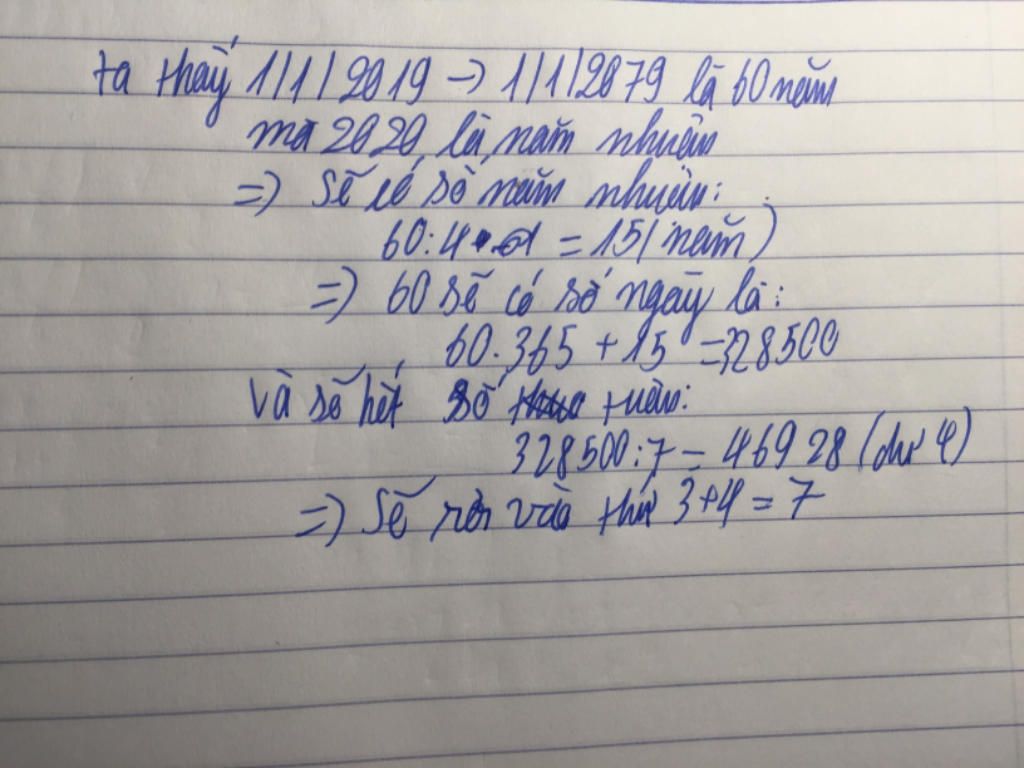 ta thấy 1/1/2019 → 1/1/2079 là 60 năm
mà 2020 là năm nhuần
=> Sẽ có số năm nhuần:
60:4 = 15 (năm)
=> 60 sẽ có số ngày là:
60.365 + 15 = 328500
Và sẽ hết số tuần:
328500:7 = 46928 (dư 4)
=> Sẽ rơi vào thứ 3+4=7